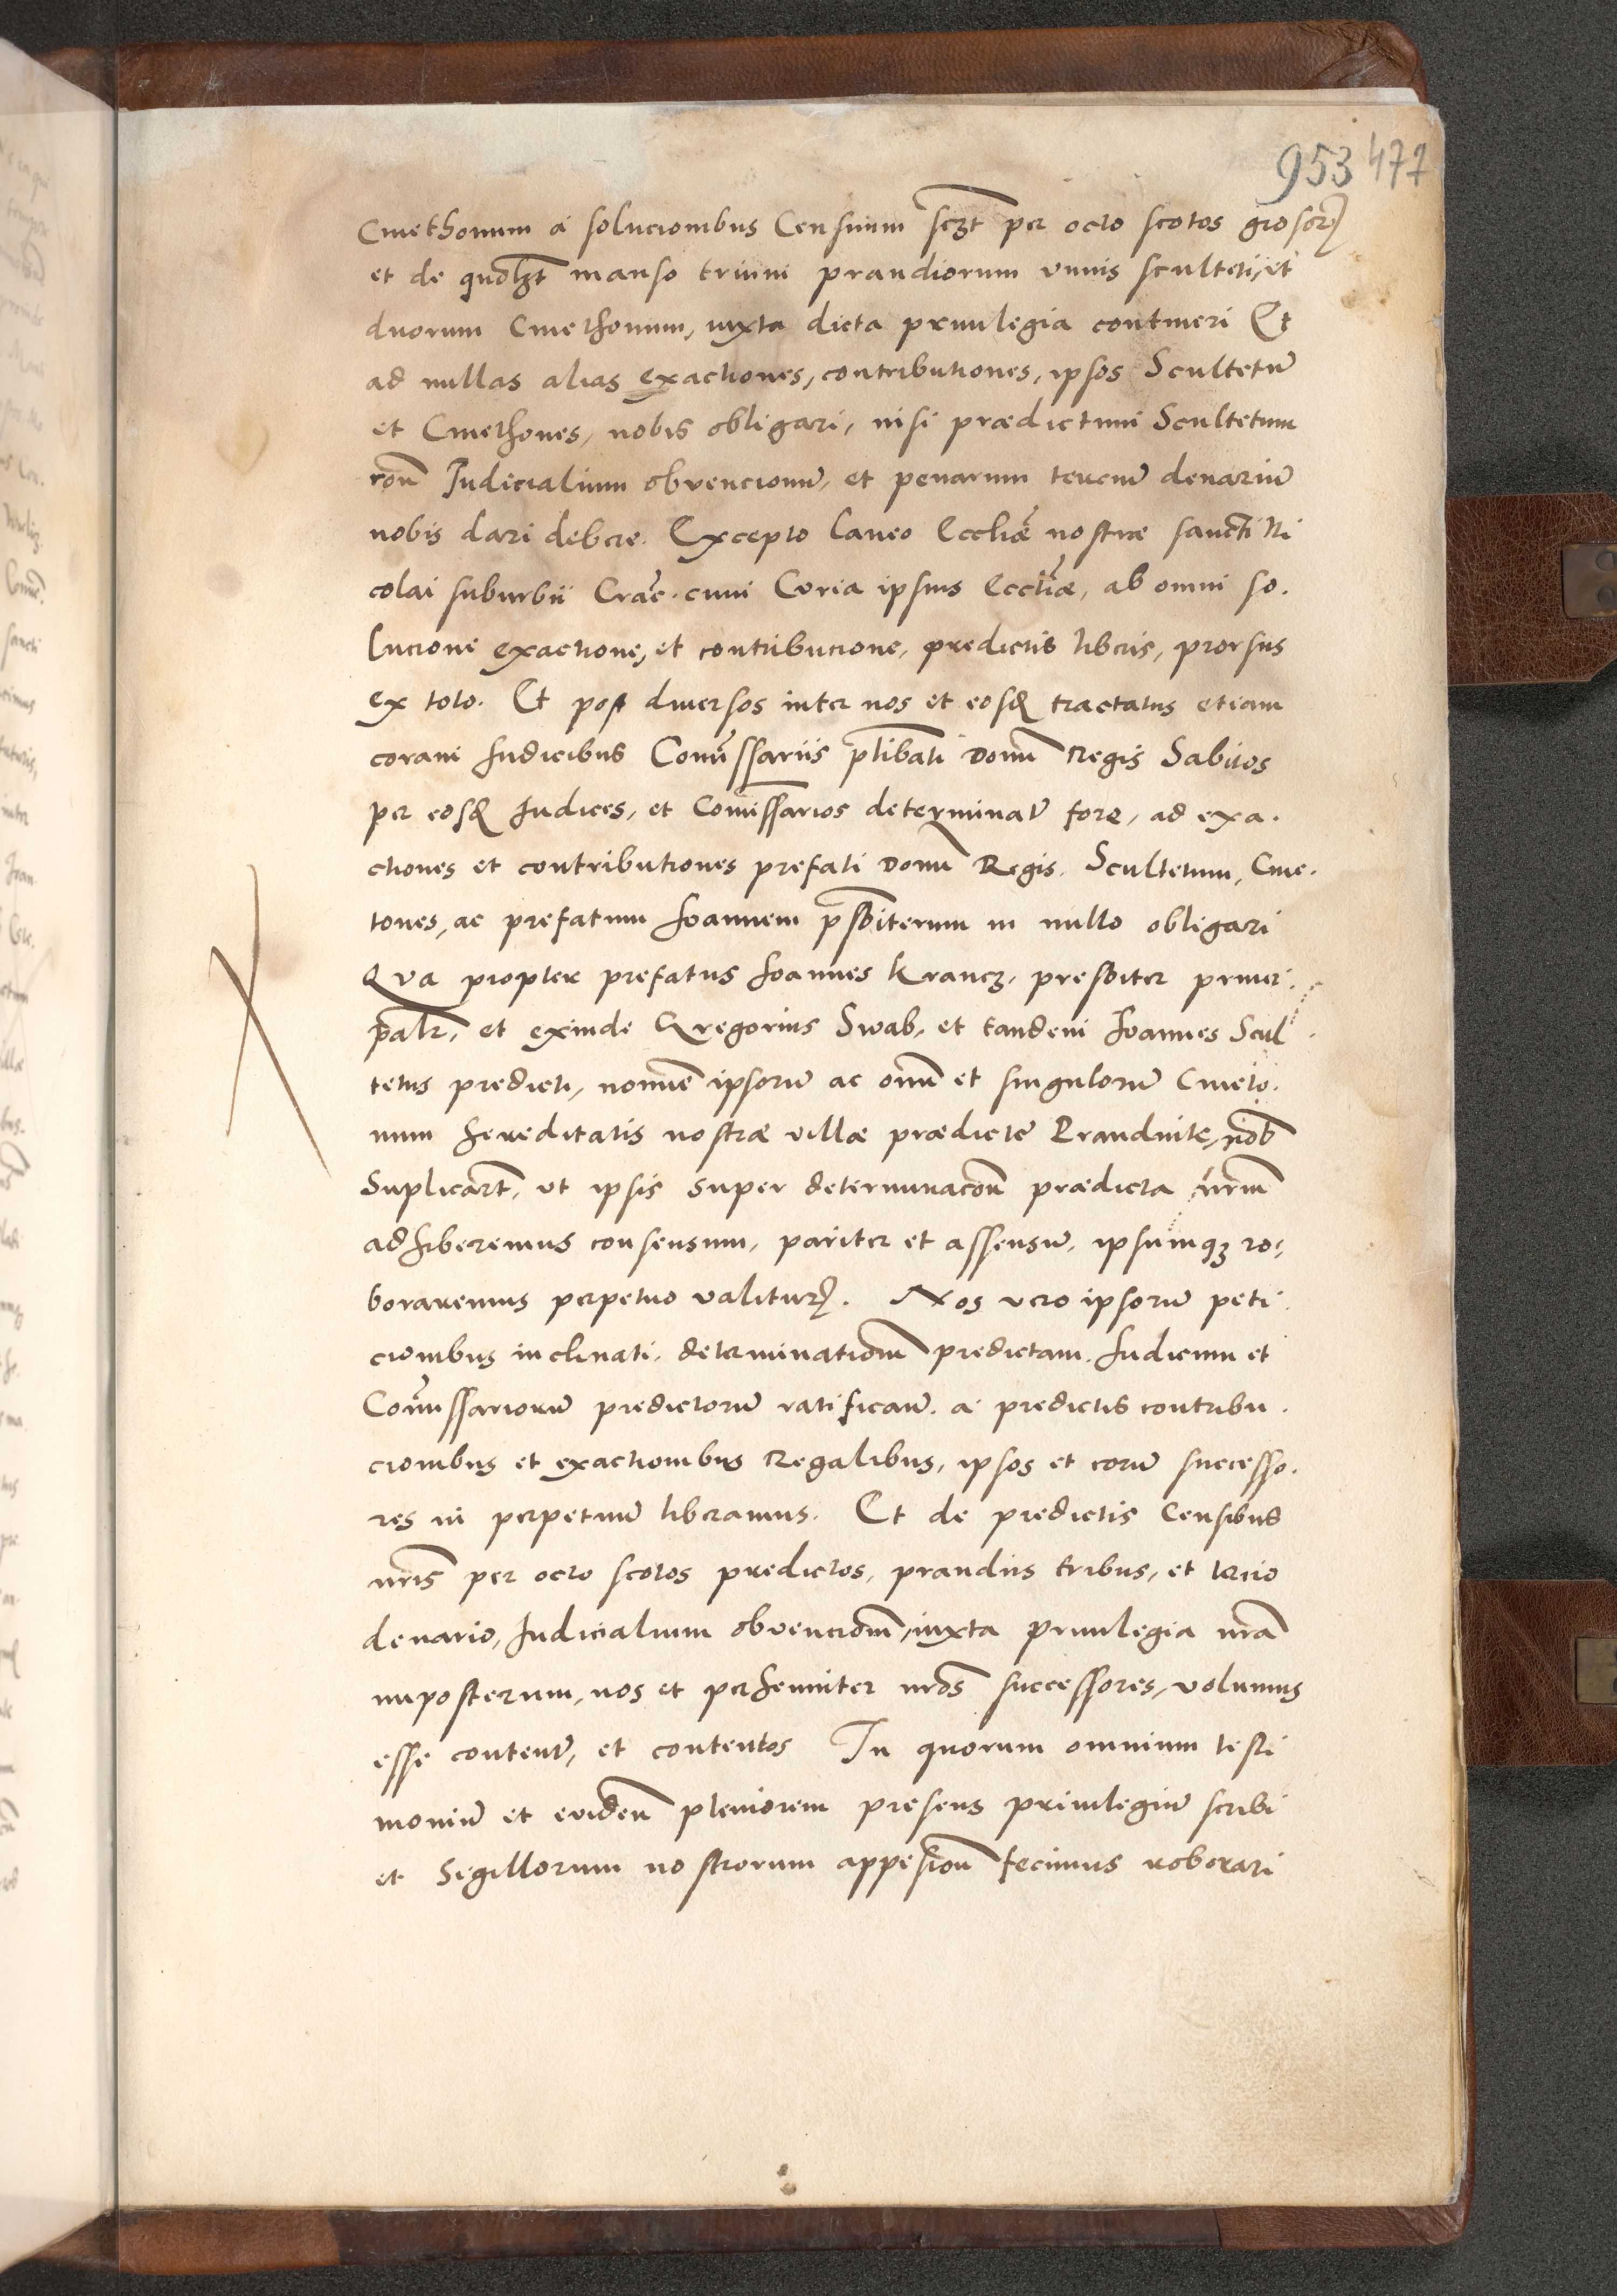 953 477
Cmethonum a solucionibus Censuum sczt per octo scotos grosorꝝ
et de quolꝫt manso trium prandiorum vnius sculteti, et
duorum Cmethonum, iuxta dicta priuilegia contineri Et
ad nullas alias exactiones, contributiones, ipsos Scultetū
et Cmethones, nobis obligari, nisi prædictum Scultetum
ron̄ Iudicialium obvencionū, et penarum terciū denariū
nobis dari debere. Excepto laneo Eccliæ nostræ sancti Ni
colai suburbii Crac̄. cum Curia ipsius Eccliæ, ab omni so.
lucione exactione, et contribucione, predictis libris, prorsus
ex toto. Et post diuersos inter nos et eosdꝫ tractatus etiam
coram Iudicibus Com̄issariis p̄libati Domī Regis habitos
per eosdꝫ Iudices, et Comissarios determinatū fore, ad exa.
ctiones et contributiones prefati Domī Regis. Scultetum, Cme.
tones, ac prefatum Joannem p̄sbiterum in nullo obligari
Qua propter prefatus Joannes Krancz, presbiter princi.
palr̄, et exinde Gregorius Swab, et tandem Joannes Scul
tetus predicti, nomīe ipsorū ac oīm et singulorū Cmeto.
num hereditatis nostræ villæ prædictæ Prandnik, nob̄
Suplicar̄t, ut ipsis super determinacōn̄ prædicta nrm̄
adhiberemus consensum, pariter et assensū, ipsumqꝫ ro,
boraremus perpetuo valiturꝝ. Nos vero ipsorū peti.
cionibus inclinati, determinationē predictam, Iudicum et
Com̄issariorū predictorū ratificam̄. a predictis contribu.
cionibus et exactionibus Regalibus, ipsos et eorū successo.
res in perpetuū liberamus. Et de predictis Censibus
nris̄ per octo scotos predictos, prandiis tribus, et tercio
denario, Iudicialium obvencionū, iuxta priuilegia nr̄a
inposterum, nos et perhenniter nr̄os successores, volumus
esse contentū, et contentos In quorum omnium testi
moniū et evideñ pleniorem presens priuilegiū scribi
et Sigillorum nostrorum appēsion̄ fecimus roborari